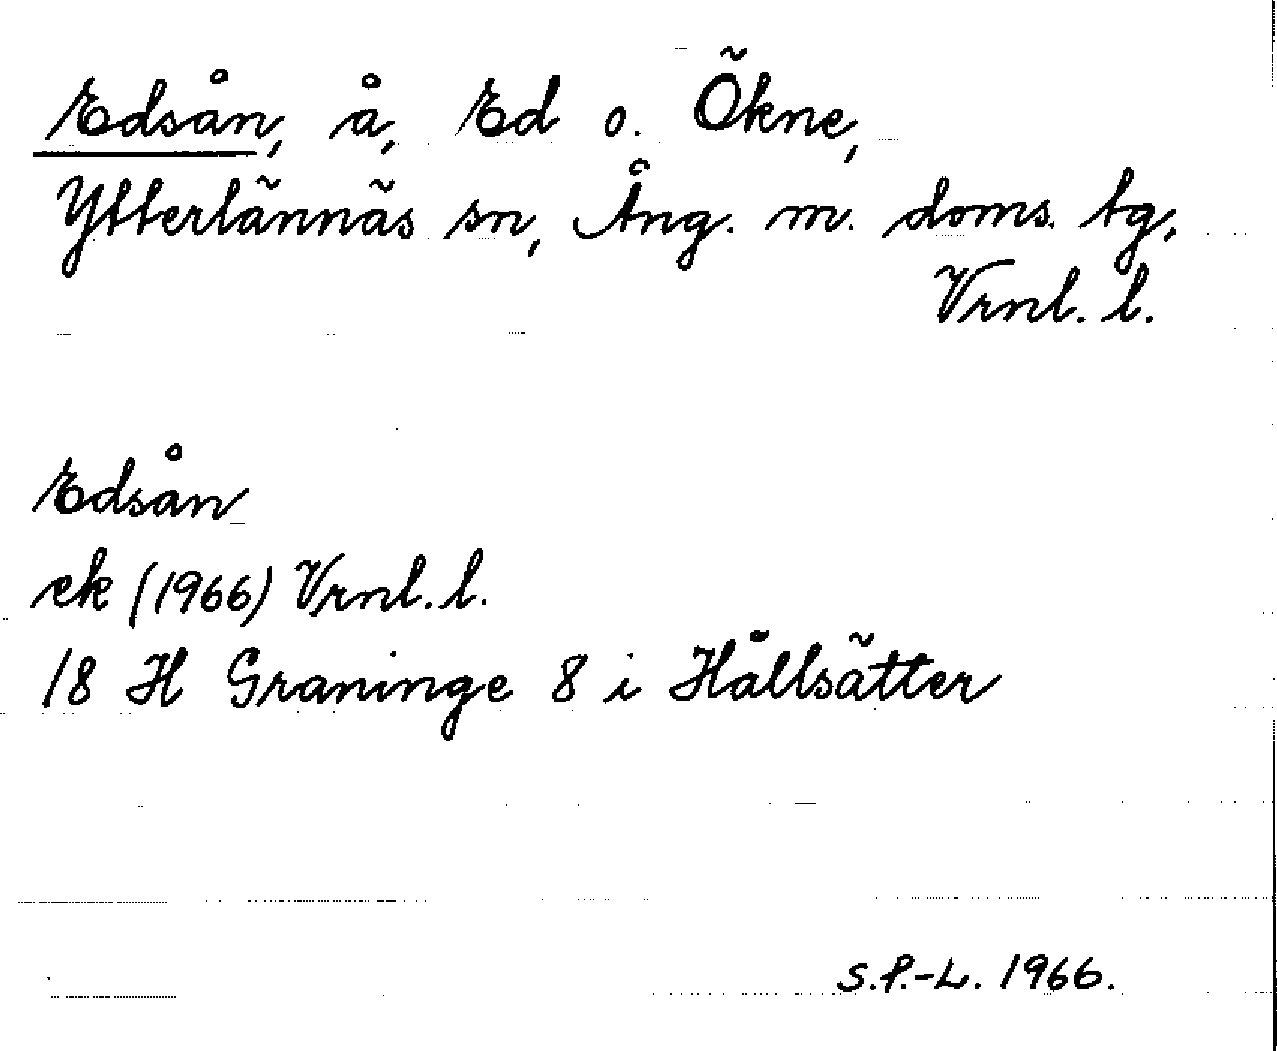 Edsån, å, Ed o. Ökne,
Ytterlännäs sn, Ång. m. doms. tg,
Vrnl. l.
Edsån
ek (1966) Vrnl. l.
18 H Graninge 8 i Hållsätter
S.P.-L. 1966.